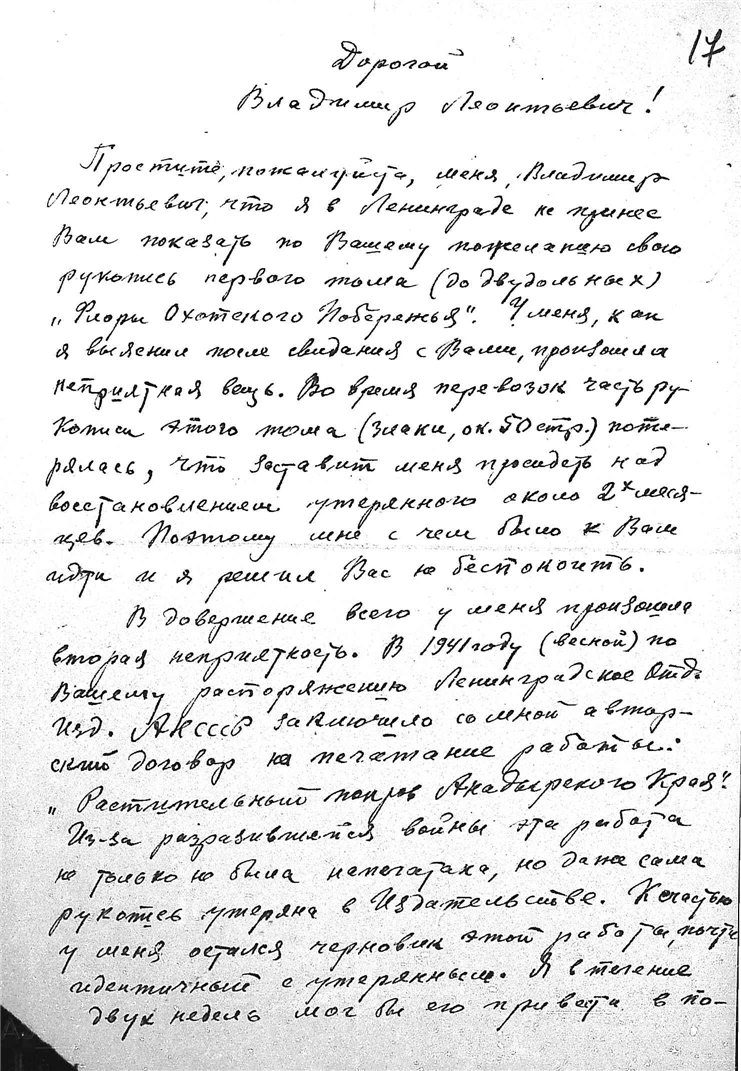 17
Дорогой
Владимир Леонтьевич!
Простите, пожалуйста, меня, Владимир
Леонтьевич, что я в Ленинграде не принес
Вам показать по Вашему пожеланию свою
рукопись первого тома (до двудольных)
„Флоры Охотского Побережья". У меня, как
я выяснил после свидания с Вами, произошла
неприятная вещь. Во время перевозок часть ру-
кописи этого тома (злаки, ок. 50 стр.) поте-
рялась, что заставит меня просидеть над
восстановлением утерянного около 2х меся-
цев. Поэтому мне с чем было к Вам
идти и я решил Вас не беспокоить.
В довершение всего у меня произошла
вторая неприятность. В 1941 году (весной) по
Вашему распоряжению Ленинградское Отд.
Изд. АНСССР заключило со мной автор-
ский договор на печатание работы:
„Растительный покров Анадырского Края".
Из-за разразившейся войны эта работа
не только не была напечатана, но даже сама
рукопись утеряна в Издательстве. К счастью
у меня остался черновик этой работы, почти
идентичный с утерянным. Я в течение
двух недель мог бы его привести в по-